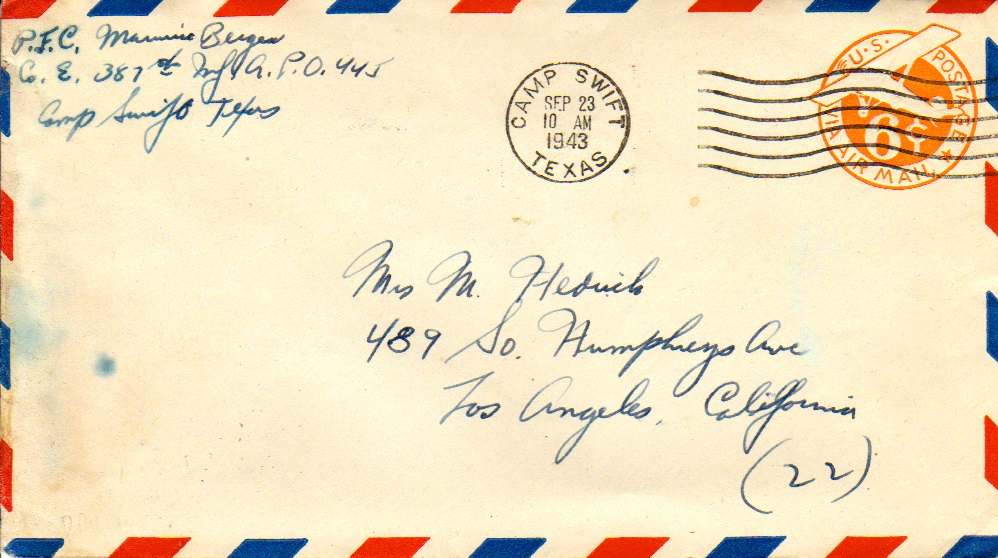 P.F.C. Maurice Bergen
Co. E. 387th Inf A.P.O. 445
Camp Swift Texas
CAMP SWIFT
SEP 23
10 AM
1943
TEXAS
U.S. POSTAGE
6¢
VIA AIR MAIL
Mrs M. Hedrick
489 So. Humphreys Ave
Los Angeles, California
(22)